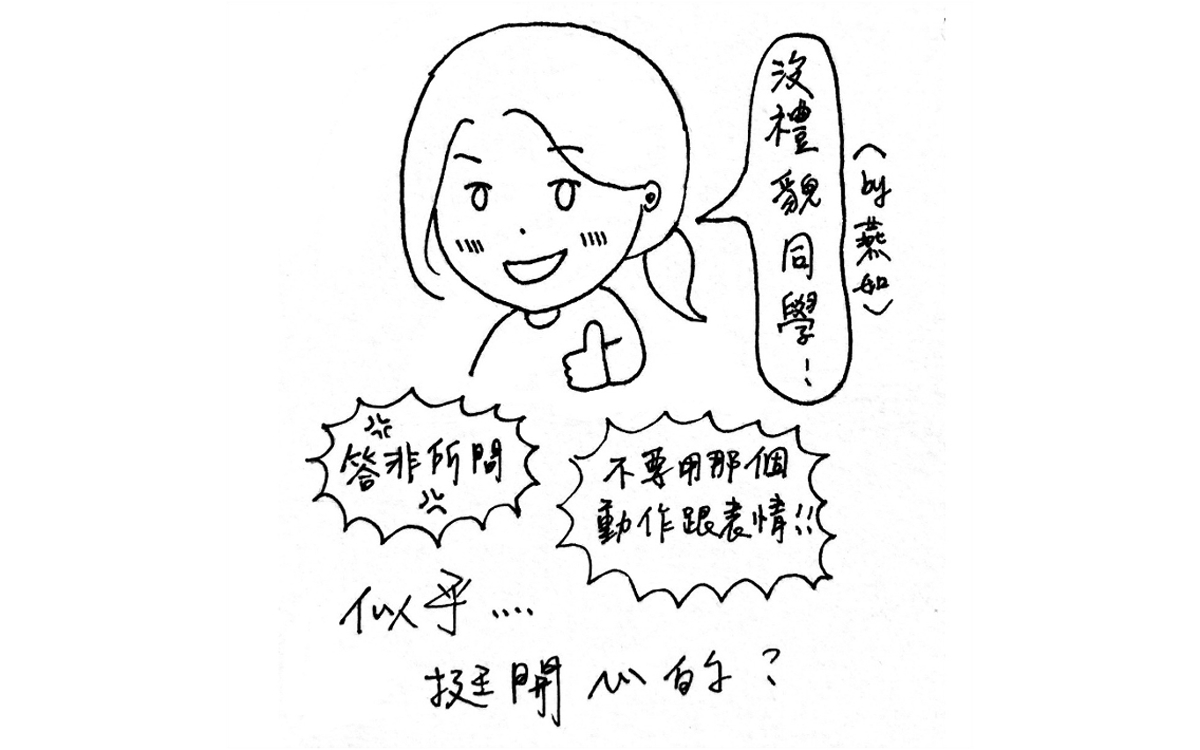 沒禮貌同學！
（by 燕如）
答非所問
不要用那個
動作跟表情!!
似乎....
挺開心的？